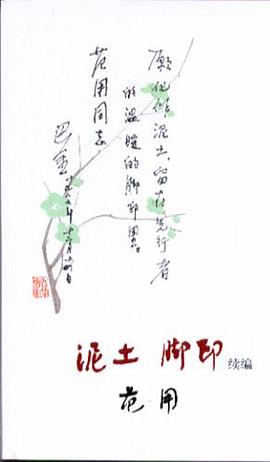 愿化做泥土，留在先行者
的温暖的脚印里。
范用同志
巴金
泥土 脚印 续编
范用